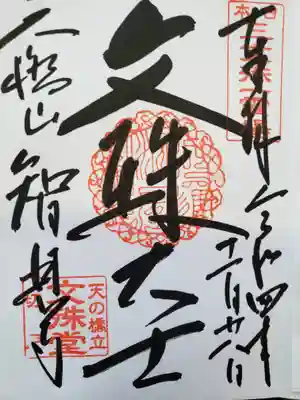 奉拝 令和四年
十一月廿八日
文殊大士
天橋山智恩寺
天の橋立
文殊堂